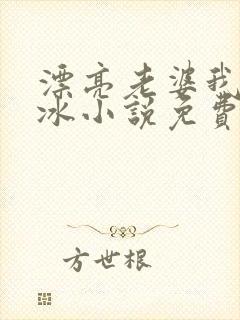 漂亮老婆我
冰小說免費
方世根